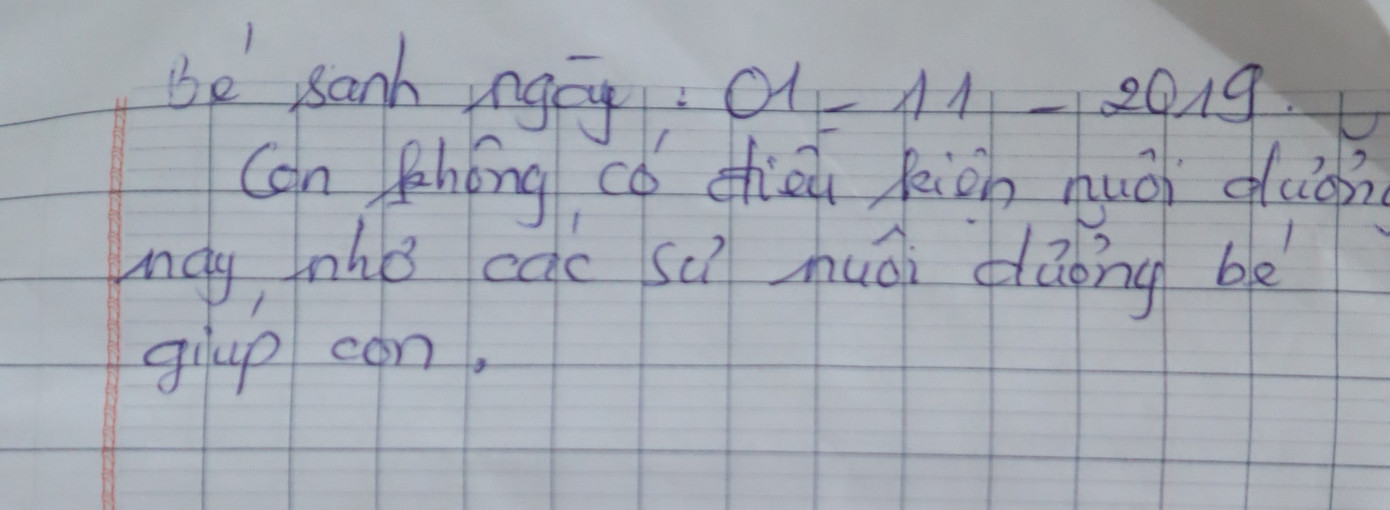 Bé sanh ngày : 01 - 11 - 2019.
Con không có điều kiện nuôi dưỡng
nay nhờ các sư nuôi dưỡng bé
giúp con.